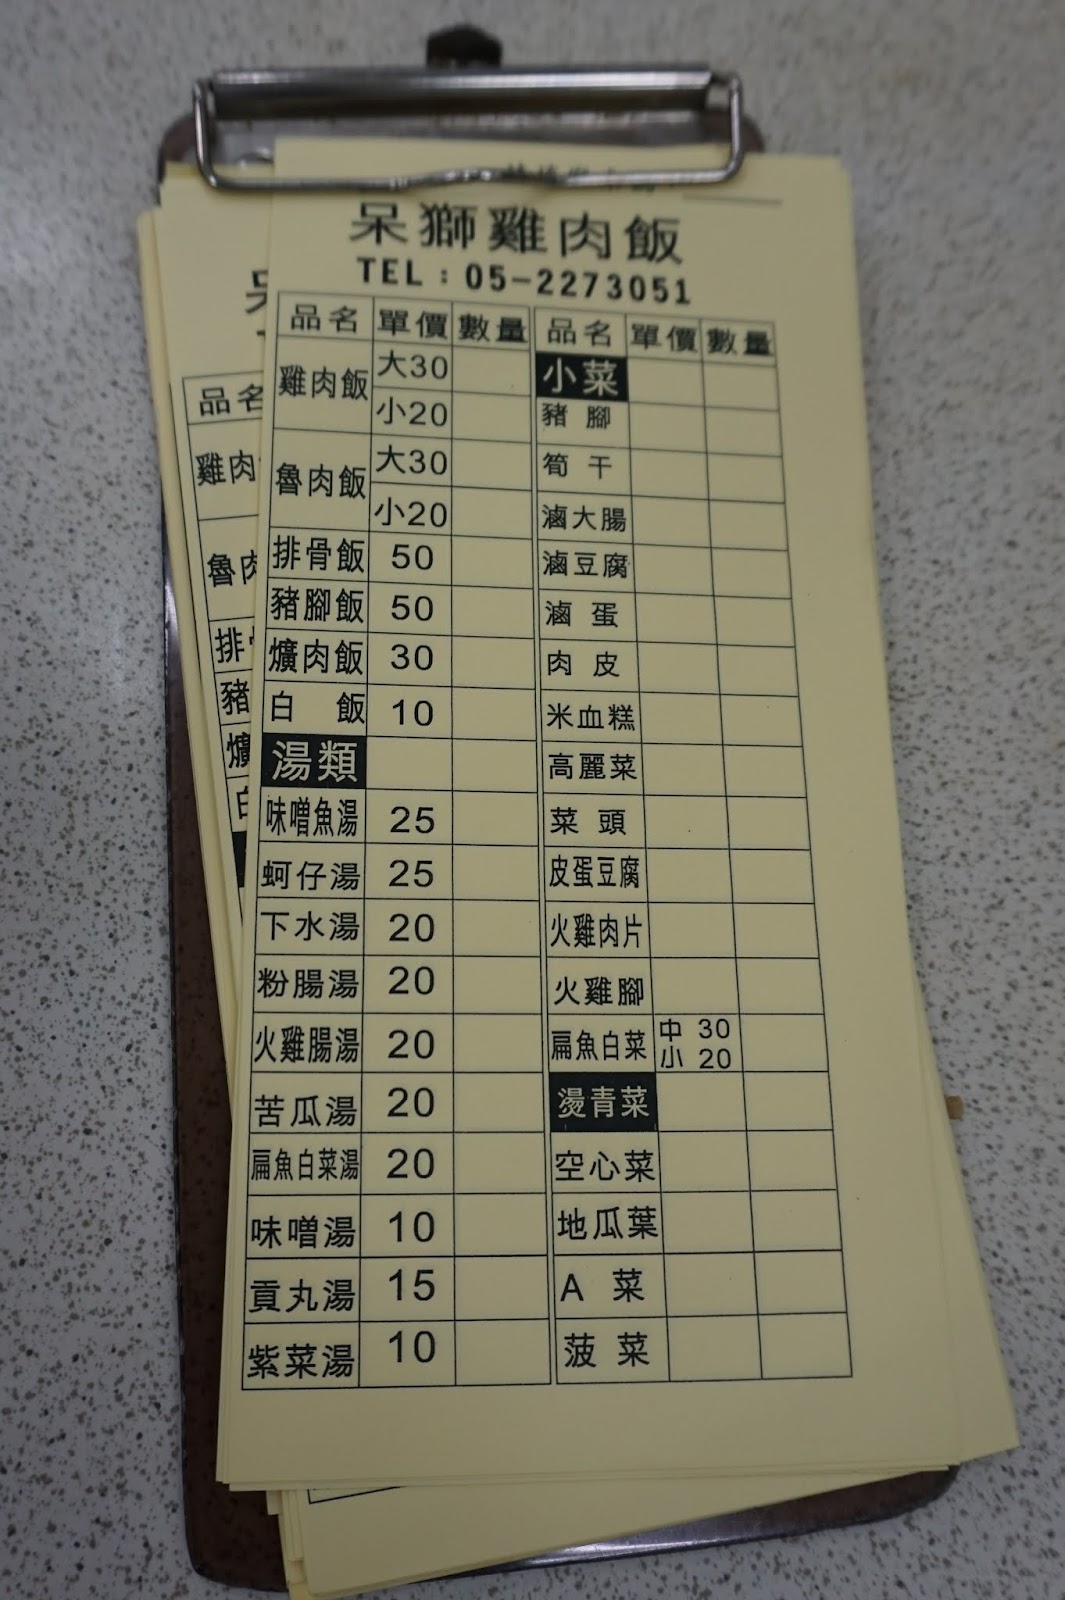 呆獅雞肉飯
TEL：05-2273051
品名 單價 數量
雞肉飯 大30
小20
魯肉飯 大30
小20
排骨飯 50
豬腳飯 50
爌肉飯 30
白 飯 10
湯類
味噌魚湯 25
蚵仔湯 25
下水湯 20
粉腸湯 20
火雞腸湯 20
苦瓜湯 20
扁魚白菜湯 20
味噌湯 10
貢丸湯 15
紫菜湯 10
品名 單價 數量
小菜
豬 腳
筍 干
滷大腸
滷豆腐
滷 蛋
肉 皮
米血糕
高麗菜
菜 頭
皮蛋豆腐
火雞肉片
火雞腳
扁魚白菜 中 30
小 20
燙青菜
空心菜
地瓜葉
A 菜
菠 菜
品名
雞肉
魯肉
排
豬
爌
白